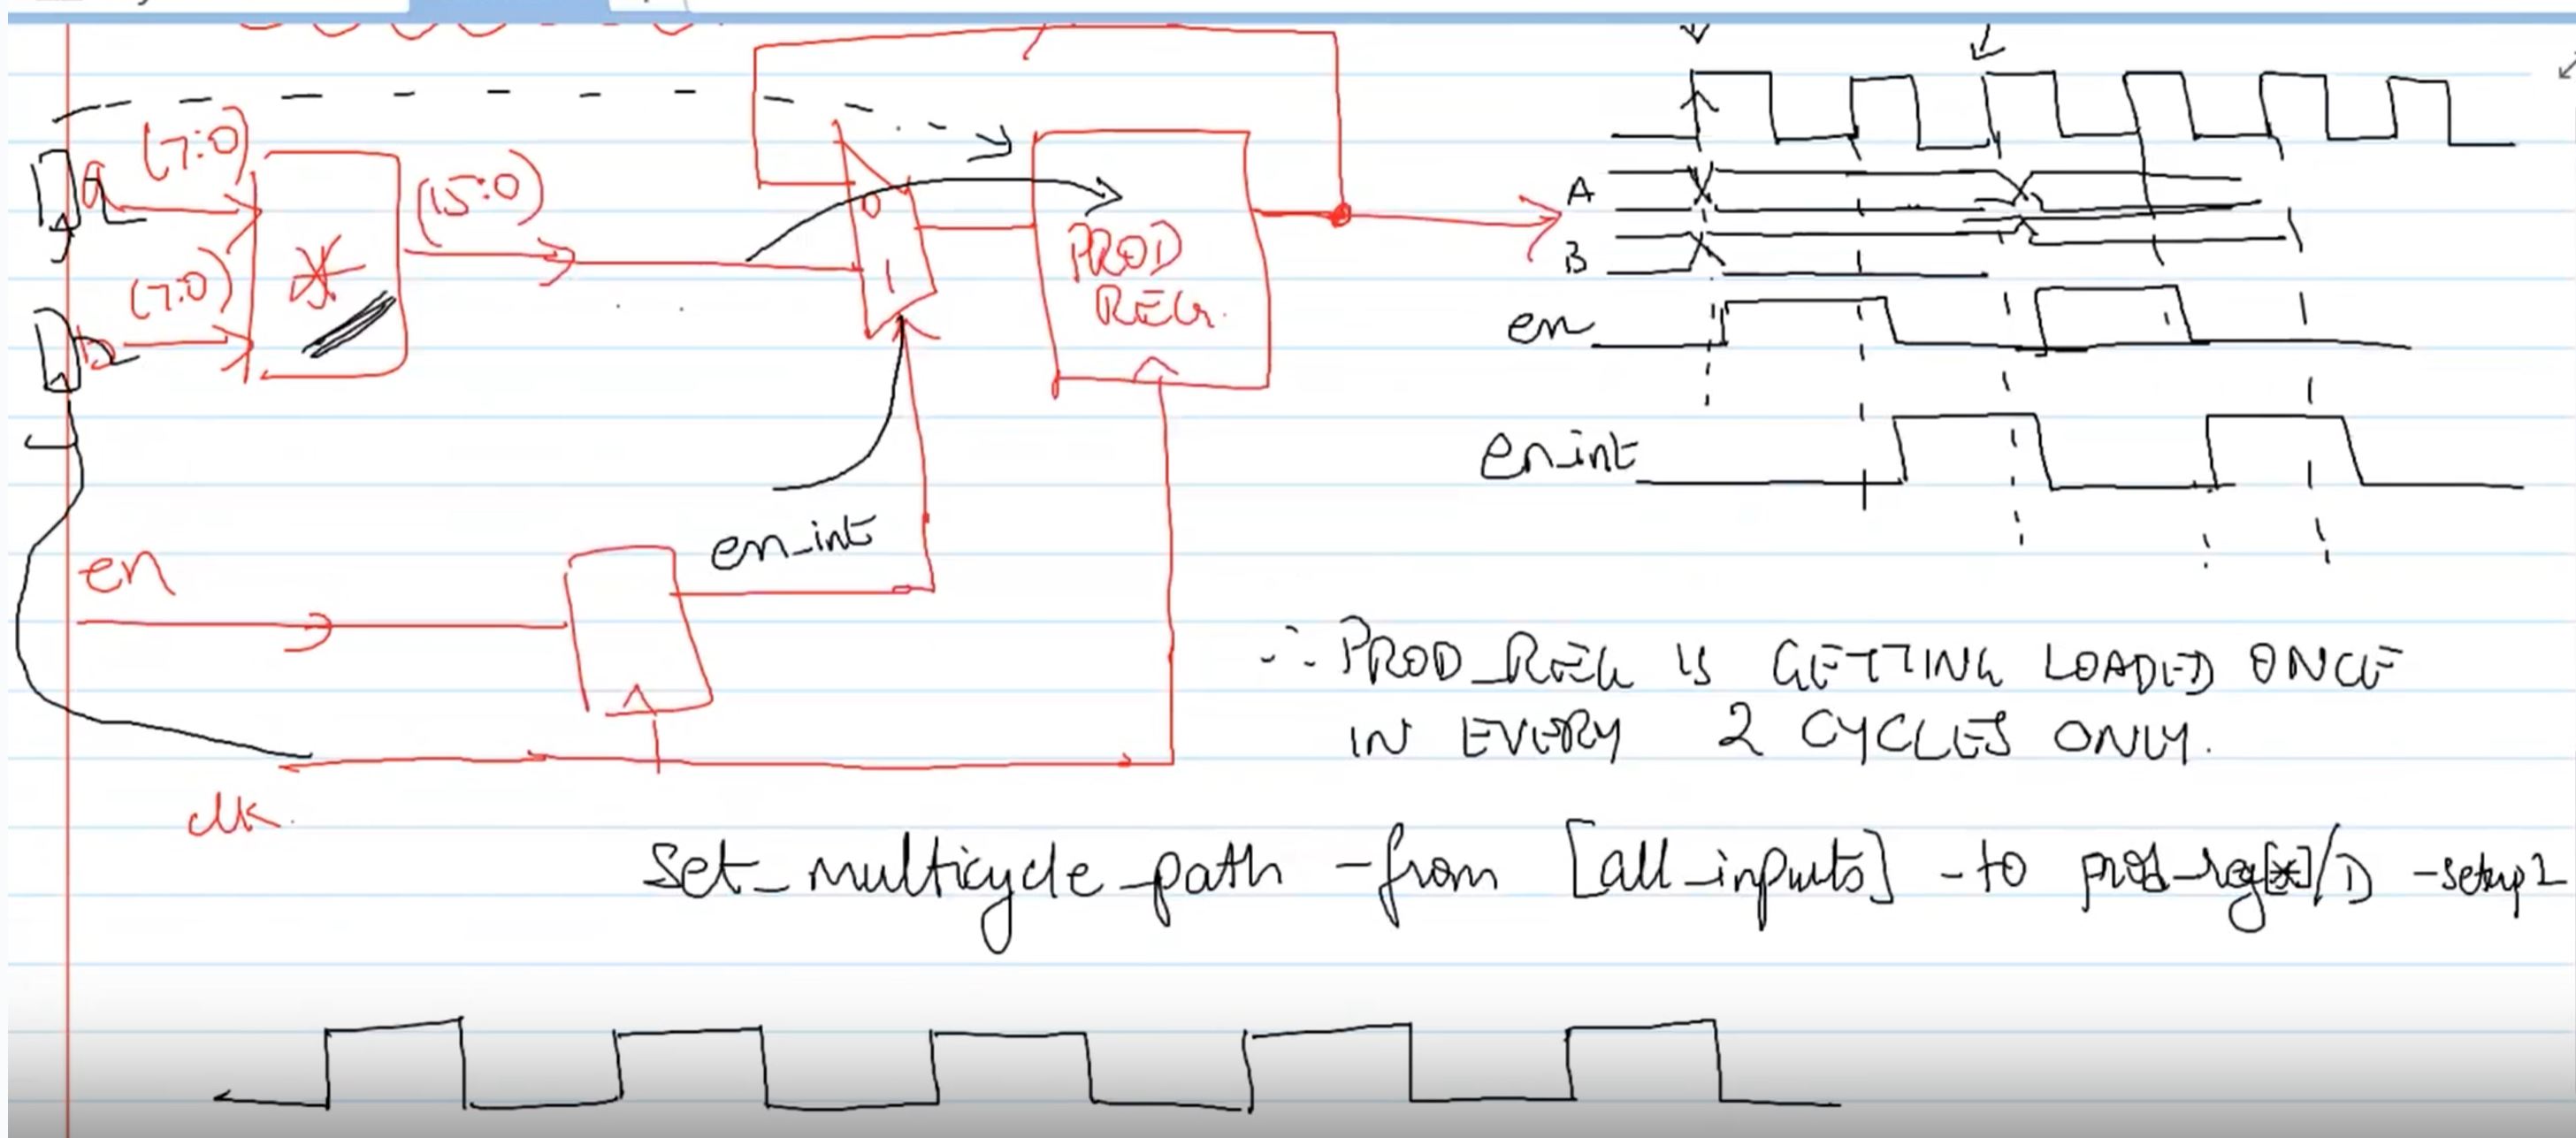 (7:0)
a
(15:0)
(7:0)
b
*
0
1
PROD
REG.
A
B
en
en_int
en_int
en
clk.
∴ PROD_REG IS GETTING LOADED ONCE
IN EVERY 2 CYCLES ONLY.
set_multicycle_path -from [all_inputs] -to prod_reg[*]/D -setup 2